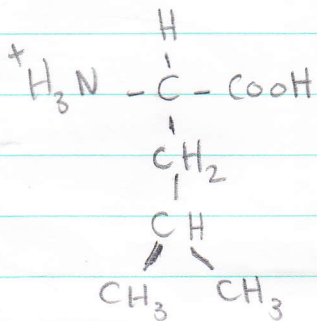 H
+
H3N - C - COOH
CH2
CH
CH3 CH3